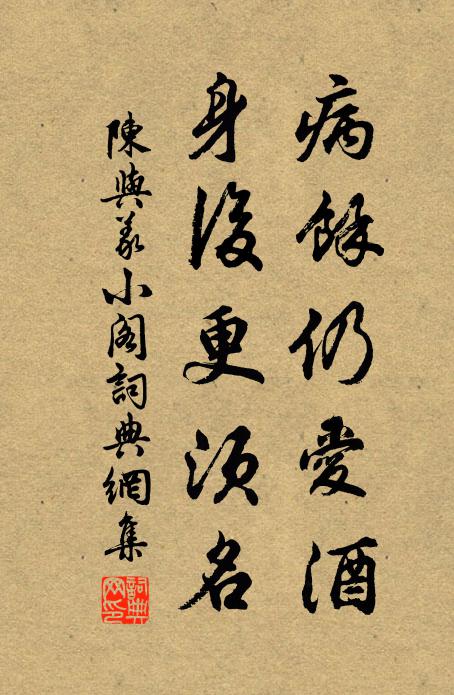 病餘仍愛酒
身後更須名
陳與義小閣詞典網集
詞典网印